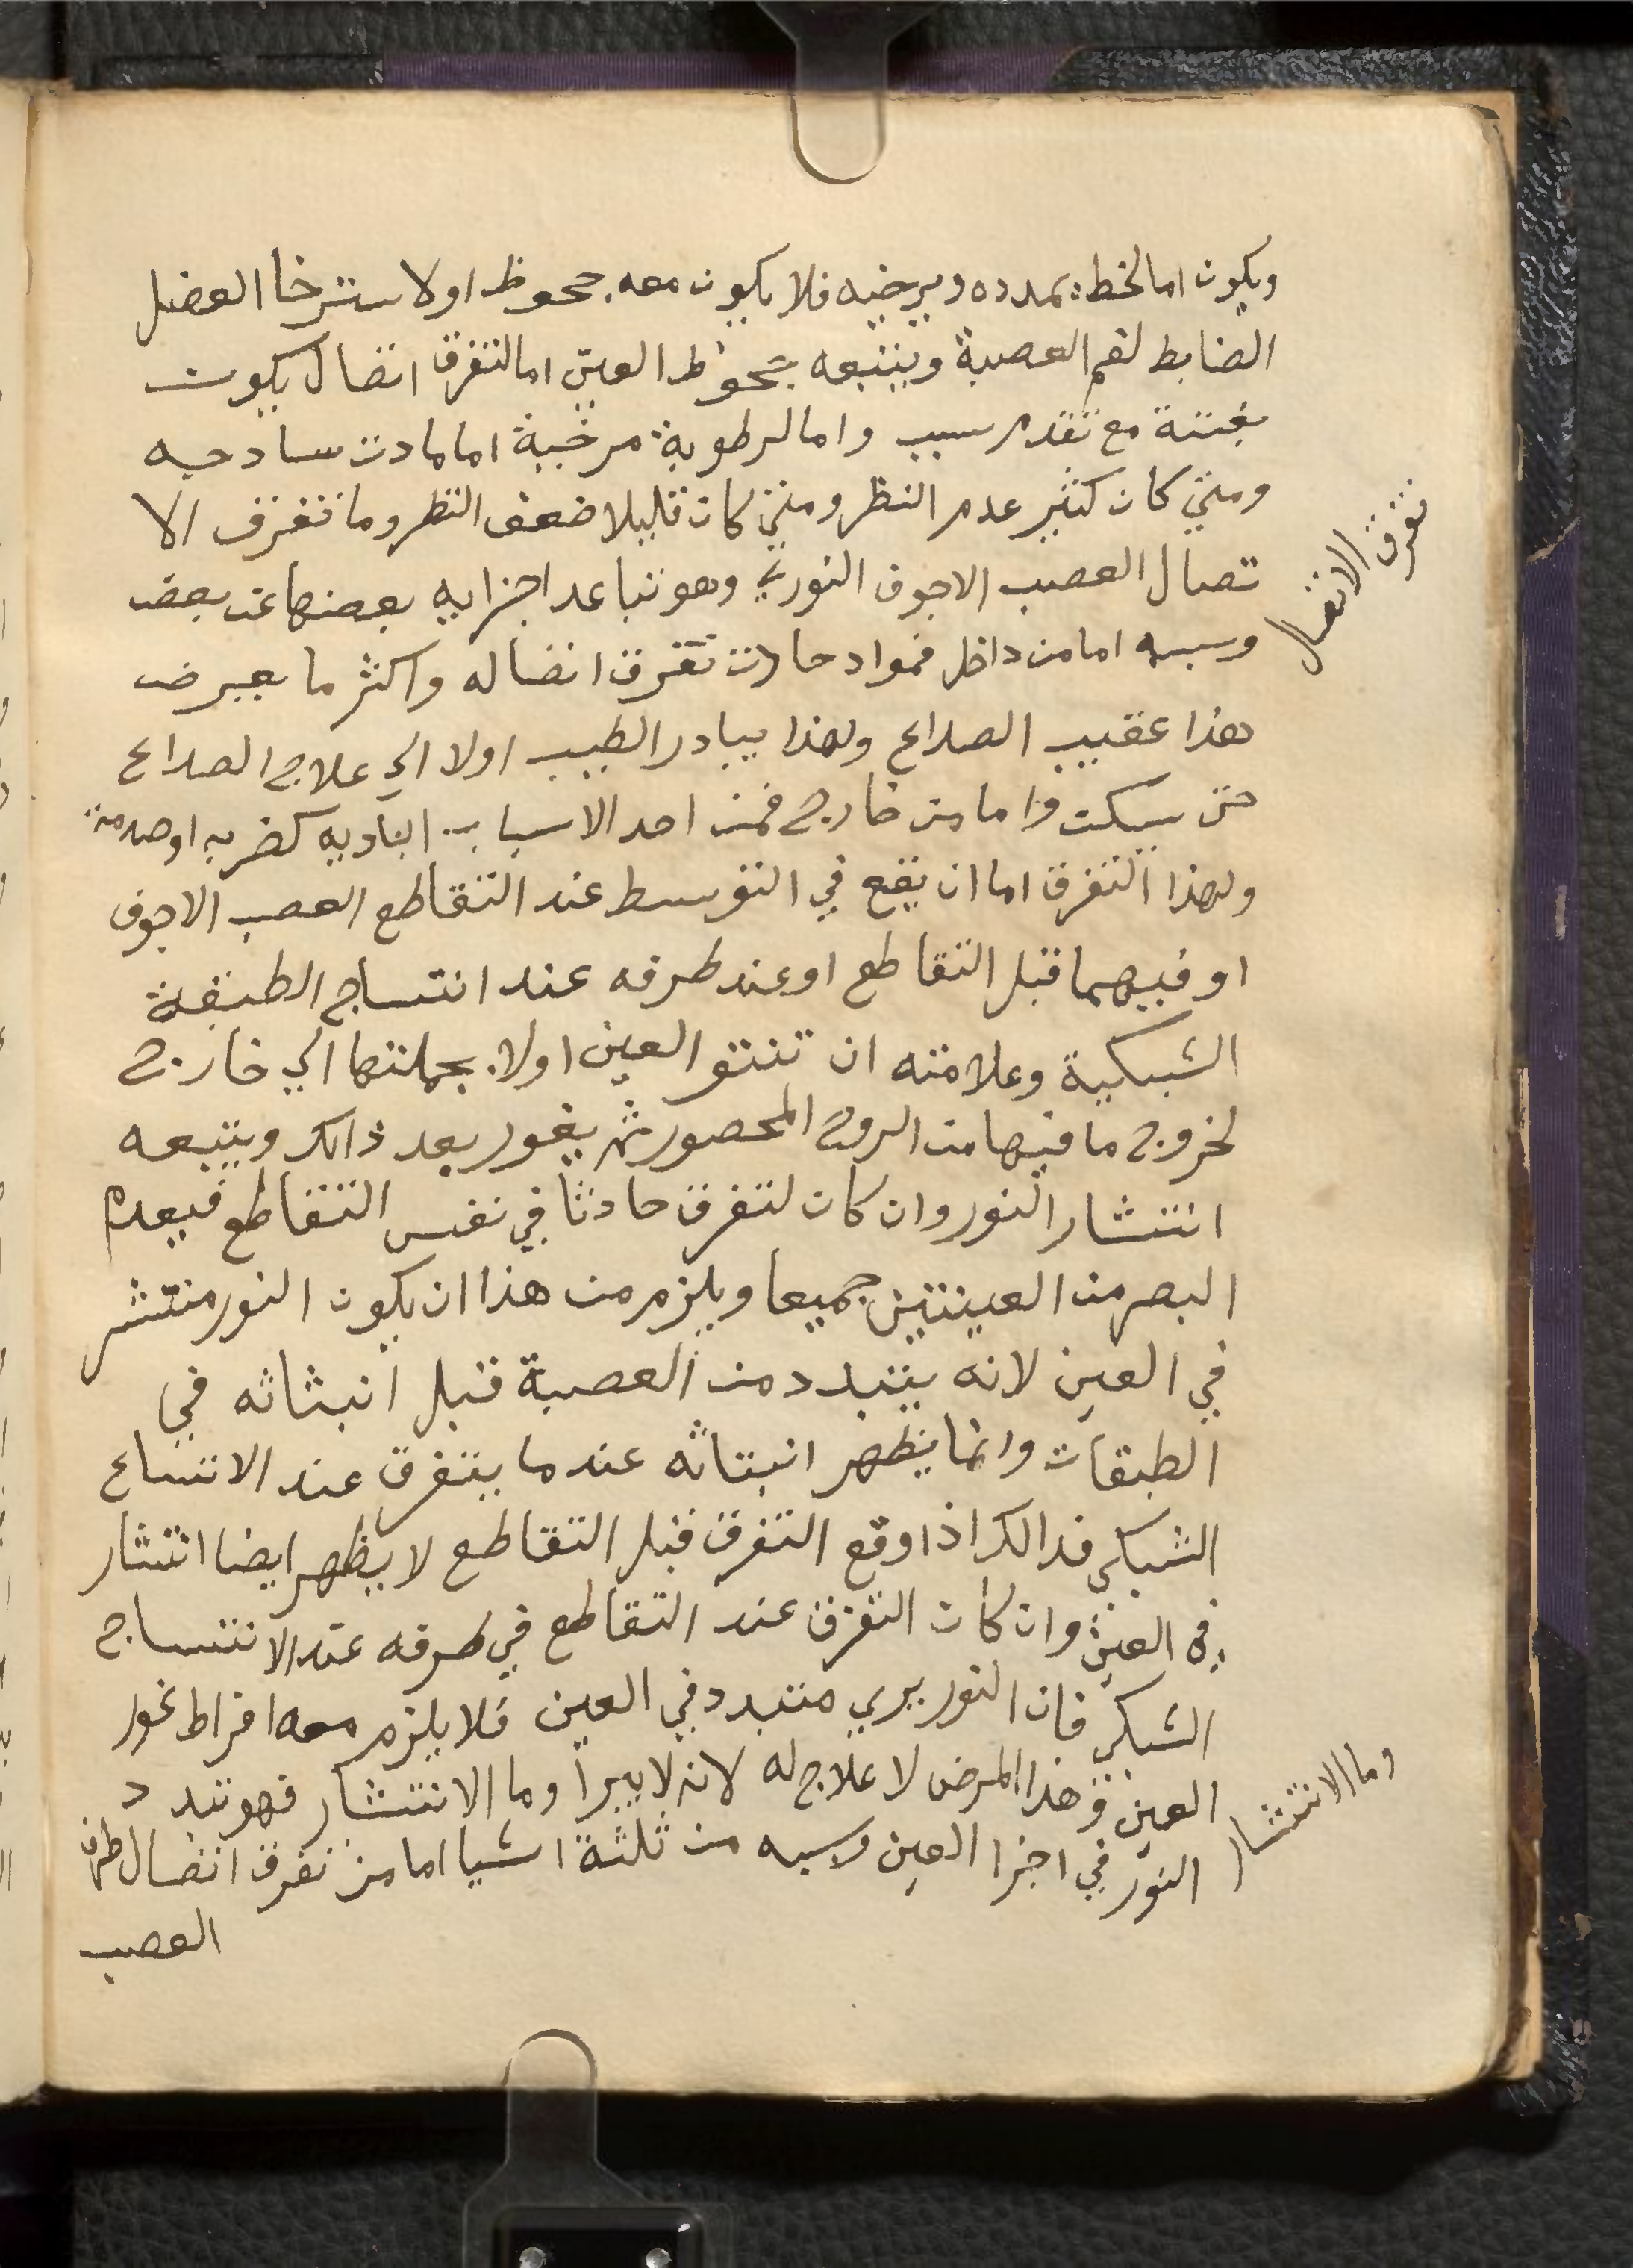 ويكون اما لخط يمدده ويرخيه فلا يكون معه جحوظ اولا سترخا العضل
الضابط لفم العصبة ويتبعه جحوظ العين اما لتفرق اتصال يكون
بغتتة مع تقدم سبب واما لرطوبة مرخية اما لمادت سادحيه
ومتي كان كثير عدم النظر ومتي كان قليلا ضعف النظر وما تفرف الا
تصال العصب الاجوف النوري وهو تباعد اجزايه بعضها عن بعض
تفرق الاتصال
وسببه اما من داخل فمواد حادت تفرق اتصاله واكثر ما يعرض
هذا عقيب الصداع ولهذا يبادر الطبيب اولا الي علاج الصداع
حتي يسكن واما من خارج فمن احد الاسباب البادیه كضربه اوصدمة
ولهذا التفرق اما ان يقع في التوسط عند التقاطع العصب الاجوف
او فيهما قبل التقاطع او عند طرفه عند انتساج الطبقة
الشبكية وعلامته ان تنتو العين اولا بجملتها الي خارج
لخروج ما فيها من الروح المحصور ثم يغور بعد ذالك ويتبعه
انتشار النور وان كان لتفرق حادثا في نفس التقاطع فيعدم
البصر من العينتين جميعا ويلزم من هذا ان يكون النور منتشر
في العين لانه يتبدد من العصبة قبل انبثاثه في
الطبقات وانما يظهر انبتاثه عندما يتفرق عند الانتساع
الشبكي فدالك اذا وقع التفرق قبل التقاطع لا يظهر ايضا انتشار
في العين وان كان التفرق عند التقاطع في طرفه عند الانتساج
الشبكي فان النور يري متبدد في العين فلا يلزم معه افراط غور
العين وهذا المرض لا علاج له لانه لا يبرا وما الانتشار فهو تبدد
وما الانتشار
النور في اجزا العين وسببه من ثلثة اشيا اما من تفرق اتصال طرف
العصب